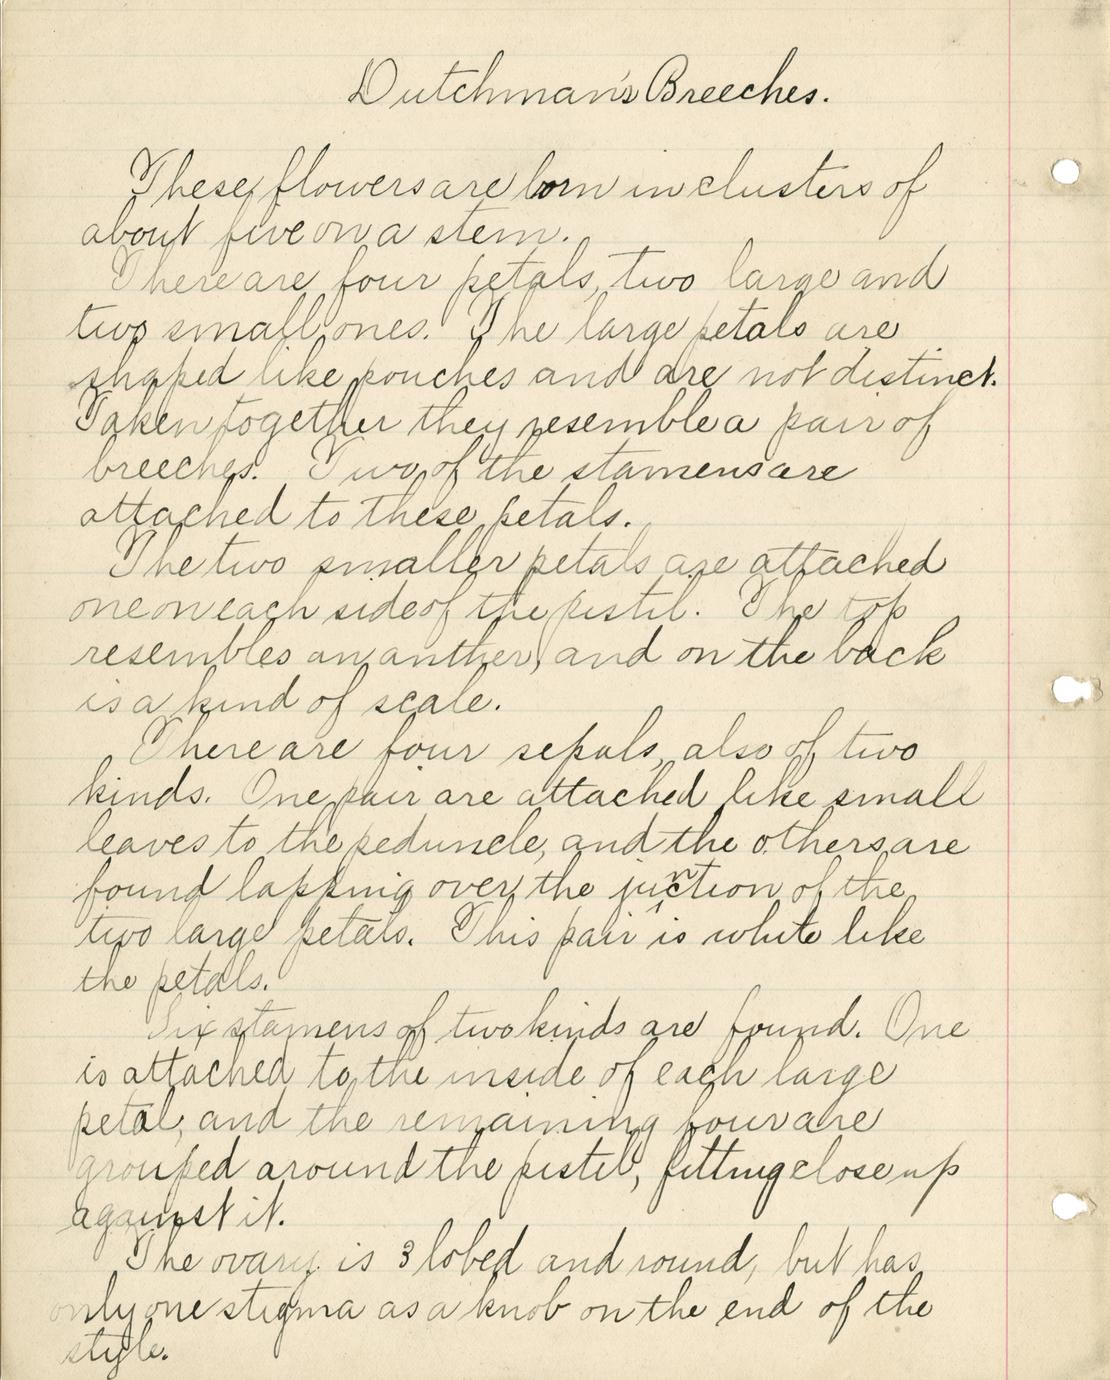 Dutchman's Breeches.
These flowers are born in clusters of
about five on a stem.
There are four petals, two large and
two small ones. The large petals are
shaped like pouches and are not distinct.
Taken together they resemble a pair of
breeches. Two of the stamens are
attached to these petals.
The two smaller petals are attached
one on each side of the pistil. The top
resembles an anther, and on the back
is a kind of scale.
There are four sepals, also of two
kinds. One pair are attached like small
leaves to the peduncle, and the others are
found lapping over the junction of the
two large petals. This pair is white like
the petals.
Six stamens of two kinds are found. One
is attached to the inside of each large
petal, and the remaining four are
grouped around the pistil, fitting close up
against it.
The ovary is 3 lobed and round, but has
only one stigma as a knob on the end of the
style.